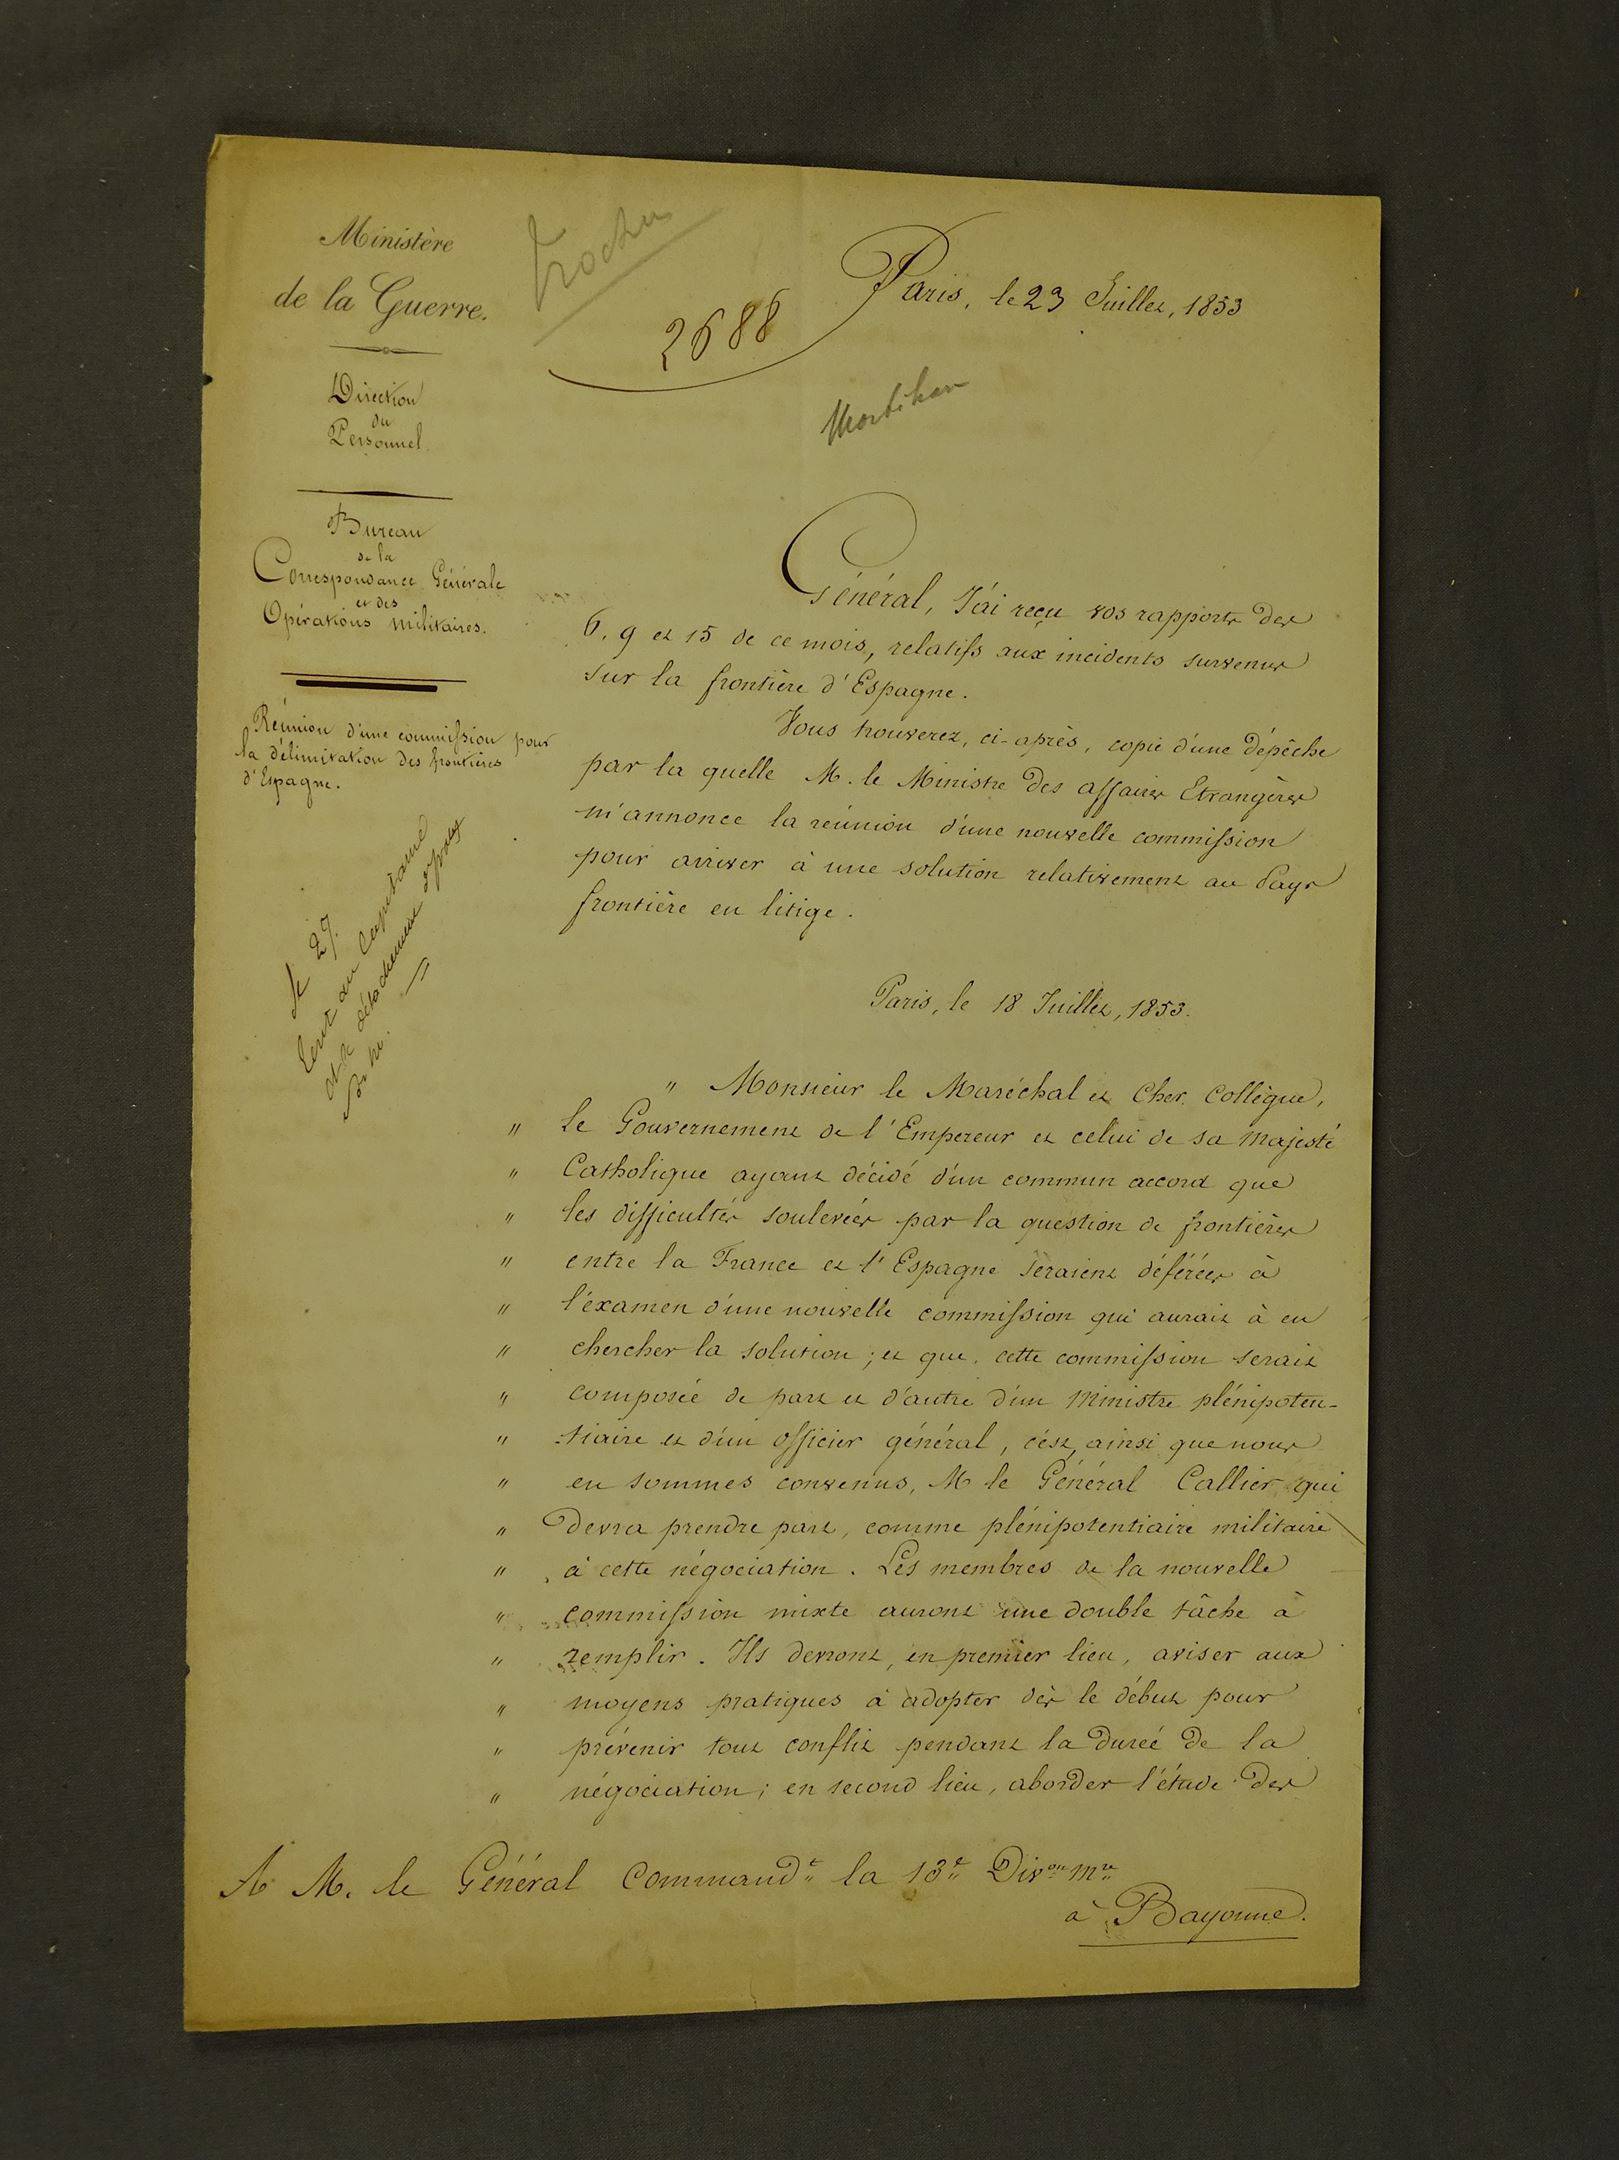 Ministère
de la Guerre.
Direction
du
Personnel.
Bureau
de la
Correspondance Générale
et des
Opérations militaires.
Réunion d'une commission pour
la délimitation des frontières
d'Espagne.
Trochu
2688
Paris, le 23 Juillet, 1853
Morbihan
Général, J'ai reçu vos rapports des
6, 9 et 15 de ce mois, relatifs aux incidents survenus
sur la frontière d'Espagne.
Vous trouverez, ci-après, copie d'une dépêche
par la quelle M. le Ministre des affaires Etrangères
m'annonce la réunion d'une nouvelle commission
pour arriver à une solution relativement au Pays
frontière en litige.
le 27.
Ecrit au Capitaine
détachement
Paris, le 18 Juillet, 1853.
" Monsieur le Maréchal et Cher Collègue,
" le Gouvernement de l'Empereur et celui de sa majesté
" Catholique ayant décidé d'un commun accord que
" les difficultés soulevées par la question de frontières
" entre la France et l'Espagne seraient déférées à
" l'examen d'une nouvelle commission qui aurait à en
" chercher la solution ; et que cette commission serait
" composée de part et d'autre d'un Ministre plénipoten-
" tiaire et d'un officier général, c'est, ainsi que nous
" en sommes convenus, M le Général Callier qui
" Devra prendre part, comme plénipotentiaire militaire
" à cette négociation. Les membres de la nouvelle
" commission mixte auront une double tâche à
" remplir. Ils devront, en premier lieu, aviser aux
" moyens pratiques à adopter dès le début pour
" prévenir tout conflit pendant la durée de la
" négociation ; en second lieu, aborder l'étude des
A M. le Général Command.t la 13.e Div.on m.re
à Bayonne.